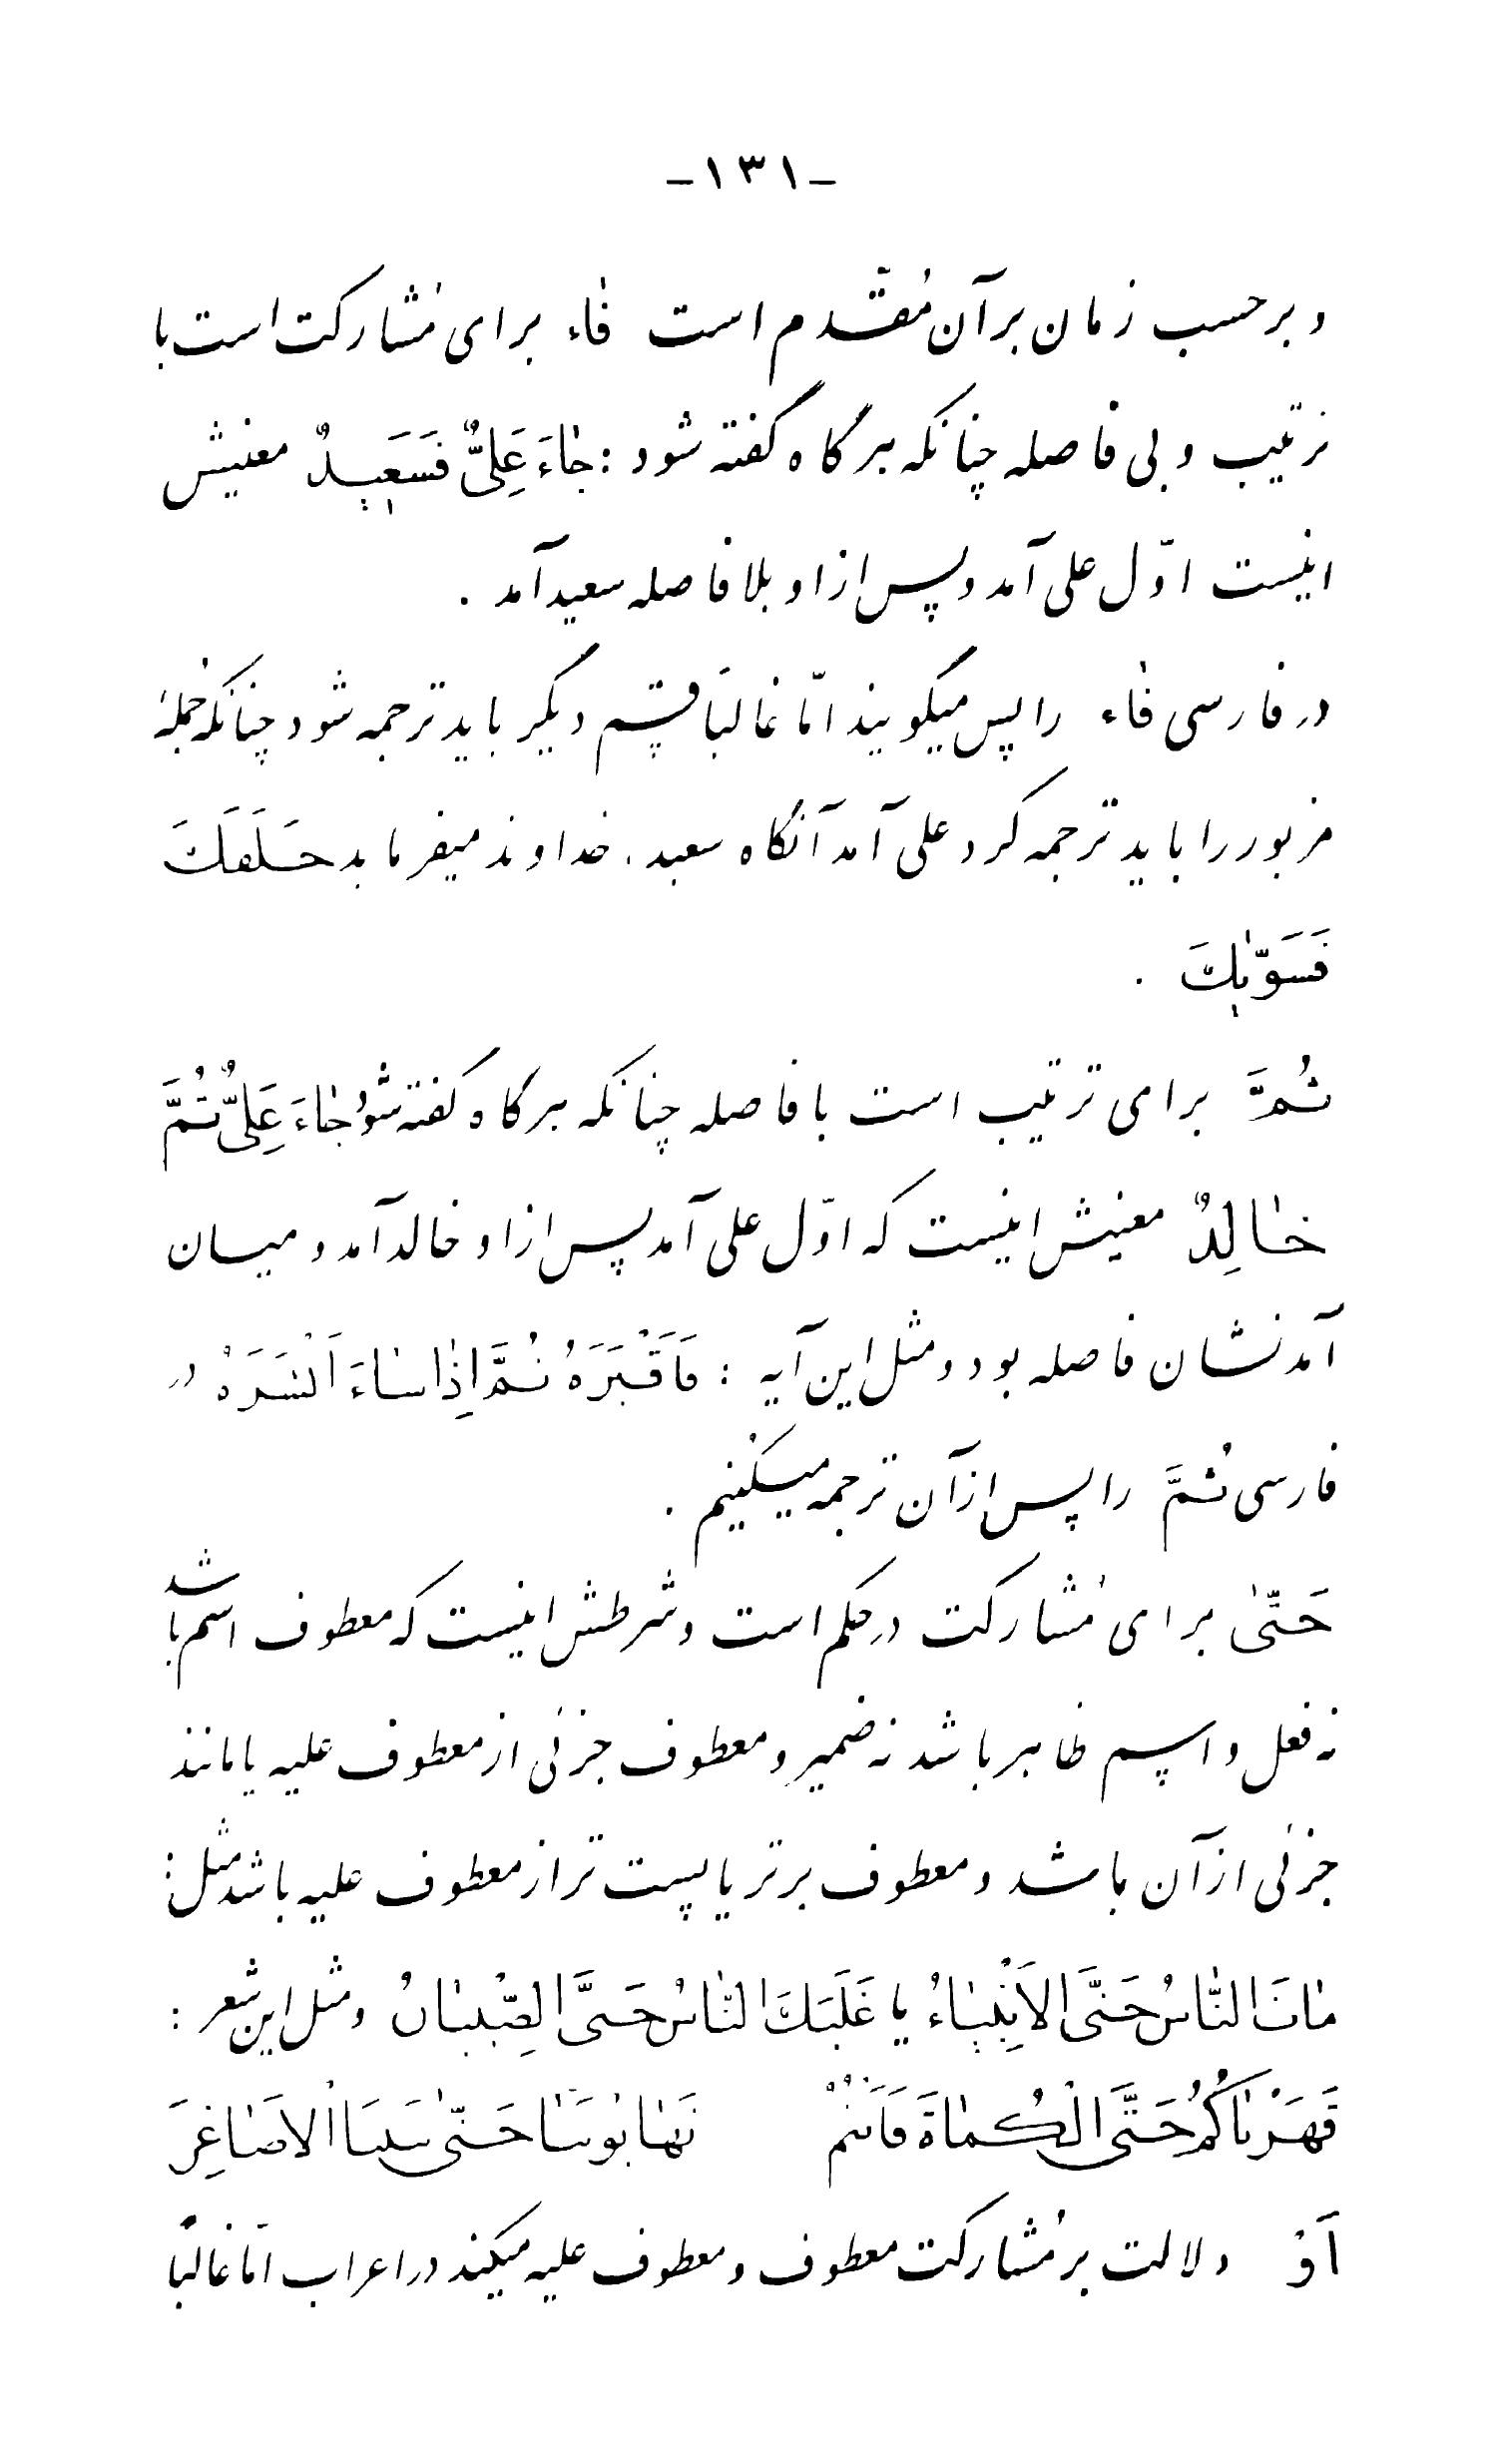 -۱۳۱-
و برحسب زمان برآن مُقدّم است فاء برای مُشارکت است با
ترتیب و بی فاصله چنانکه هرگاه گفته شود : جاءَ عَلِیٌّ فَسَعیدٌ معنیش
اینست اوّل علی آمد و پس از او بلا فاصله سعید آمد .
در فارسی فاء را پس میگویند امّا غالباً بقسم دیگر باید ترجمه شود چنانکه جُملهٔ
مزبور را باید ترجمه کرد علی آمد آنگاه سعید . خداوند میفرماید خَلَقَكَ
فَسَوّٰیكَ .
ثُمَّ برای ترتیب است با فاصله چنانکه هرگاه گفته شود جاءَ عَلِیٌّ ثُمَّ
خالِدٌ معنیش اینست که اوّل علی آمد پس از او خالد آمد و میان
آمدنشان فاصله بود و مثل این آیه : فَاَقْبَرَهُ ثُمَّ اِذا شاءَ اَنْشَرَهُ در
فارسی ثُمَّ را پس از آن ترجمه میکُنیم .
حَتّیٰ برای مُشارکت در حکم است و شرطش اینست که معطوف اسم باشد
نه فعل و اسم ظاهر باشد نه ضمیر و معطوف جزئی از معطوف علیه یا مانند
جزئی از آن باشد و معطوف برتر یا پست تر از معطوف علیه باشد مثل :
ماتَ النّاسُ حَتَّی الاَنْبِیاءُ یا غَلَبَكَ النّاسُ حَتَّی الصِّبْیانُ و مثل این شعر :
قَهَرْناکُمُ حَتَّی الْکُماةَ فَاَنْتُمْ    تَهابونَنا حَتّیٰ بَنینَا الاَصاغِرَ
اَوْ دلالت بر مُشارکت معطوف و معطوف علیه میکند در اعراب امّا غالباً